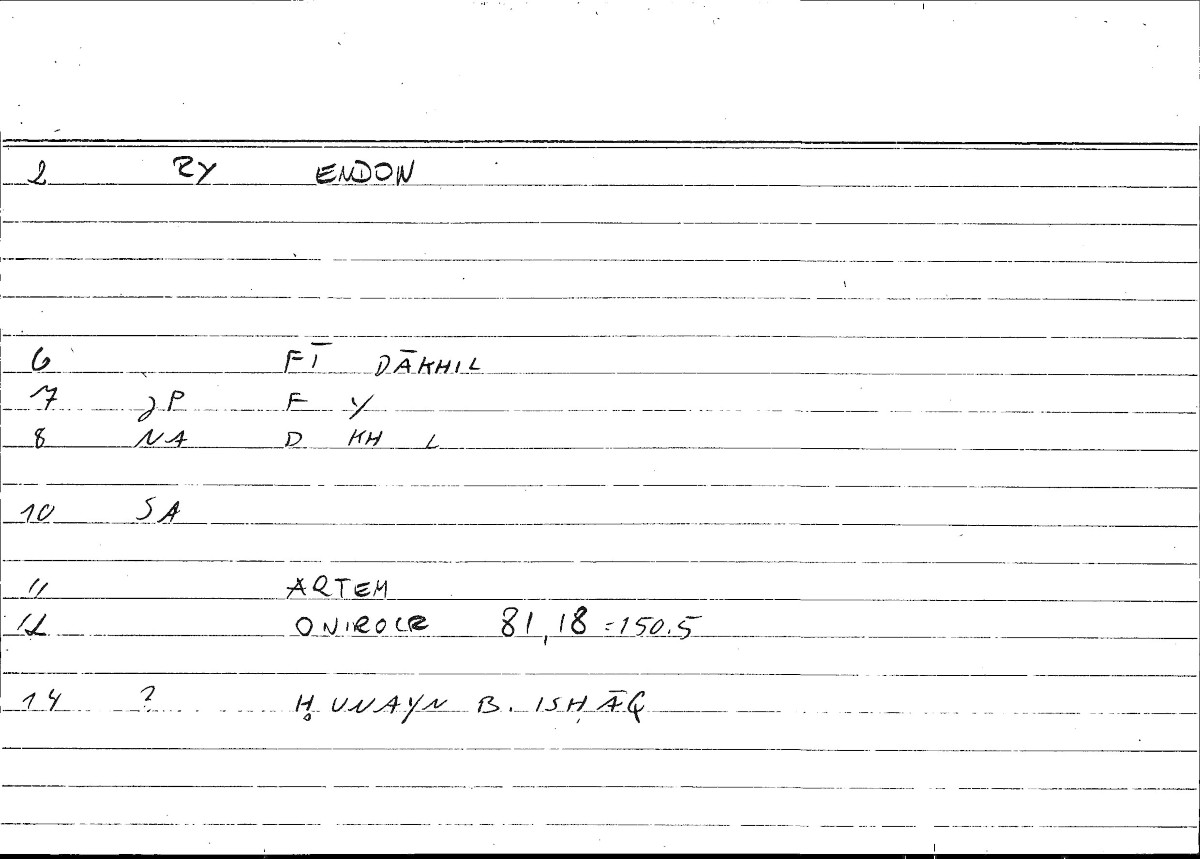 2 RY ENDON
6 FĪ DĀKHIL
7 2P F Y
8 NA D KH L
10 SA
11 ARTEM
12 ONIROCR 81,18 = 150.5
14 ? ḤUNAYN B. ISḤĀQ